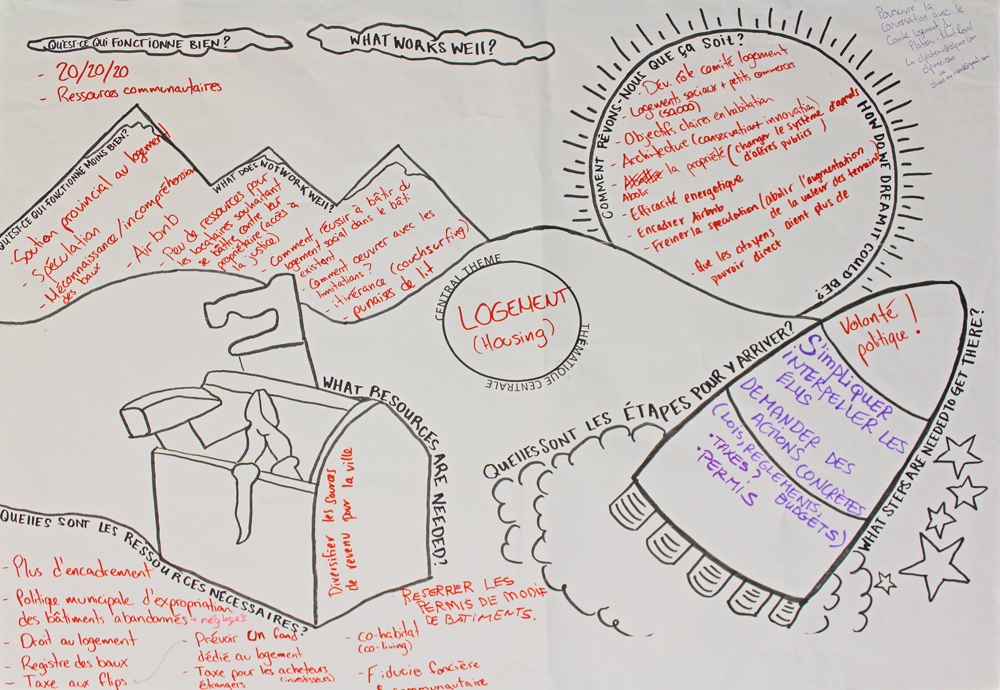 QU'EST-CE QUI FONCTIONNE BIEN?
- 20/20/20
- Ressources communautaires
WHAT WORKS WELL?
Poursuivre la
conversation avec le
Comité logement du
Plateau Mont-Royal
QU'EST-CE QUI FONCTIONNE MOINS BIEN?
- Soutien provincial au logement
- Spéculation
- Méconnaissance/incompréhension
des baux
- Airbnb
WHAT DOES NOT WORK WELL?
- Peu de ressources pour
les locataires souhaitant
se battre contre leur
propriétaire (accès à
la justice)
- Comment réussir à bâtir du
logement social dans le bâti
existant
- Comment oeuvrer avec les
limitations?
- itinérance (couchsurfing)
- punaises de lit
COMMENT RÊVONS-NOUS QUE ÇA SOIT?
HOW DO WE DREAM IT COULD BE?
- Dév. rôle comité logement
- Logements sociaux + petits commerces
(50,000)
- Objectifs claires en habitation
- Architecture (conservation et innovation)
- Abolir la propriété (changer le système d'appels
d'offres publics)
- Efficacité energetique
- Encadrer Airbnb
- Freiner la speculation (abolir l'augmentation
de la valeur des terrains)
- Que les citoyens aient plus de
pouvoir direct
CENTRAL THEME
LOGEMENT
(Housing)
THÉMATIQUE CENTRALE
WHAT RESOURCES ARE NEEDED?
Diversifier les sources
de revenu pour la ville
QUELLES SONT LES RESSOURCES NÉCESSAIRES?
- Plus d'encadrement
- Politique municipale d'expropriation
des bâtiments abandonnés + négligés
- Droit au logement
- Registre des baux
- Taxe aux flips
- Prévoir un fond
dédié au logement
- Taxe pour les acheteurs
étrangers (investisseurs)
- RESERRER LES
PERMIS DE MODIF
DE BÂTIMENTS.
- co-habitat
(co-living)
- Fiducie foncière
communautaire
QUELLES SONT LES ÉTAPES POUR Y ARRIVER?
WHAT STEPS ARE NEEDED TO GET THERE?
Volonté
politique!
S'IMPLIQUER
INTERPELLER LES
ÉLUS
DEMANDER DES
ACTIONS CONCRÈTES
(LOIS, REGLEMENTS,
BUDGETS)
. TAXES?
. PERMIS